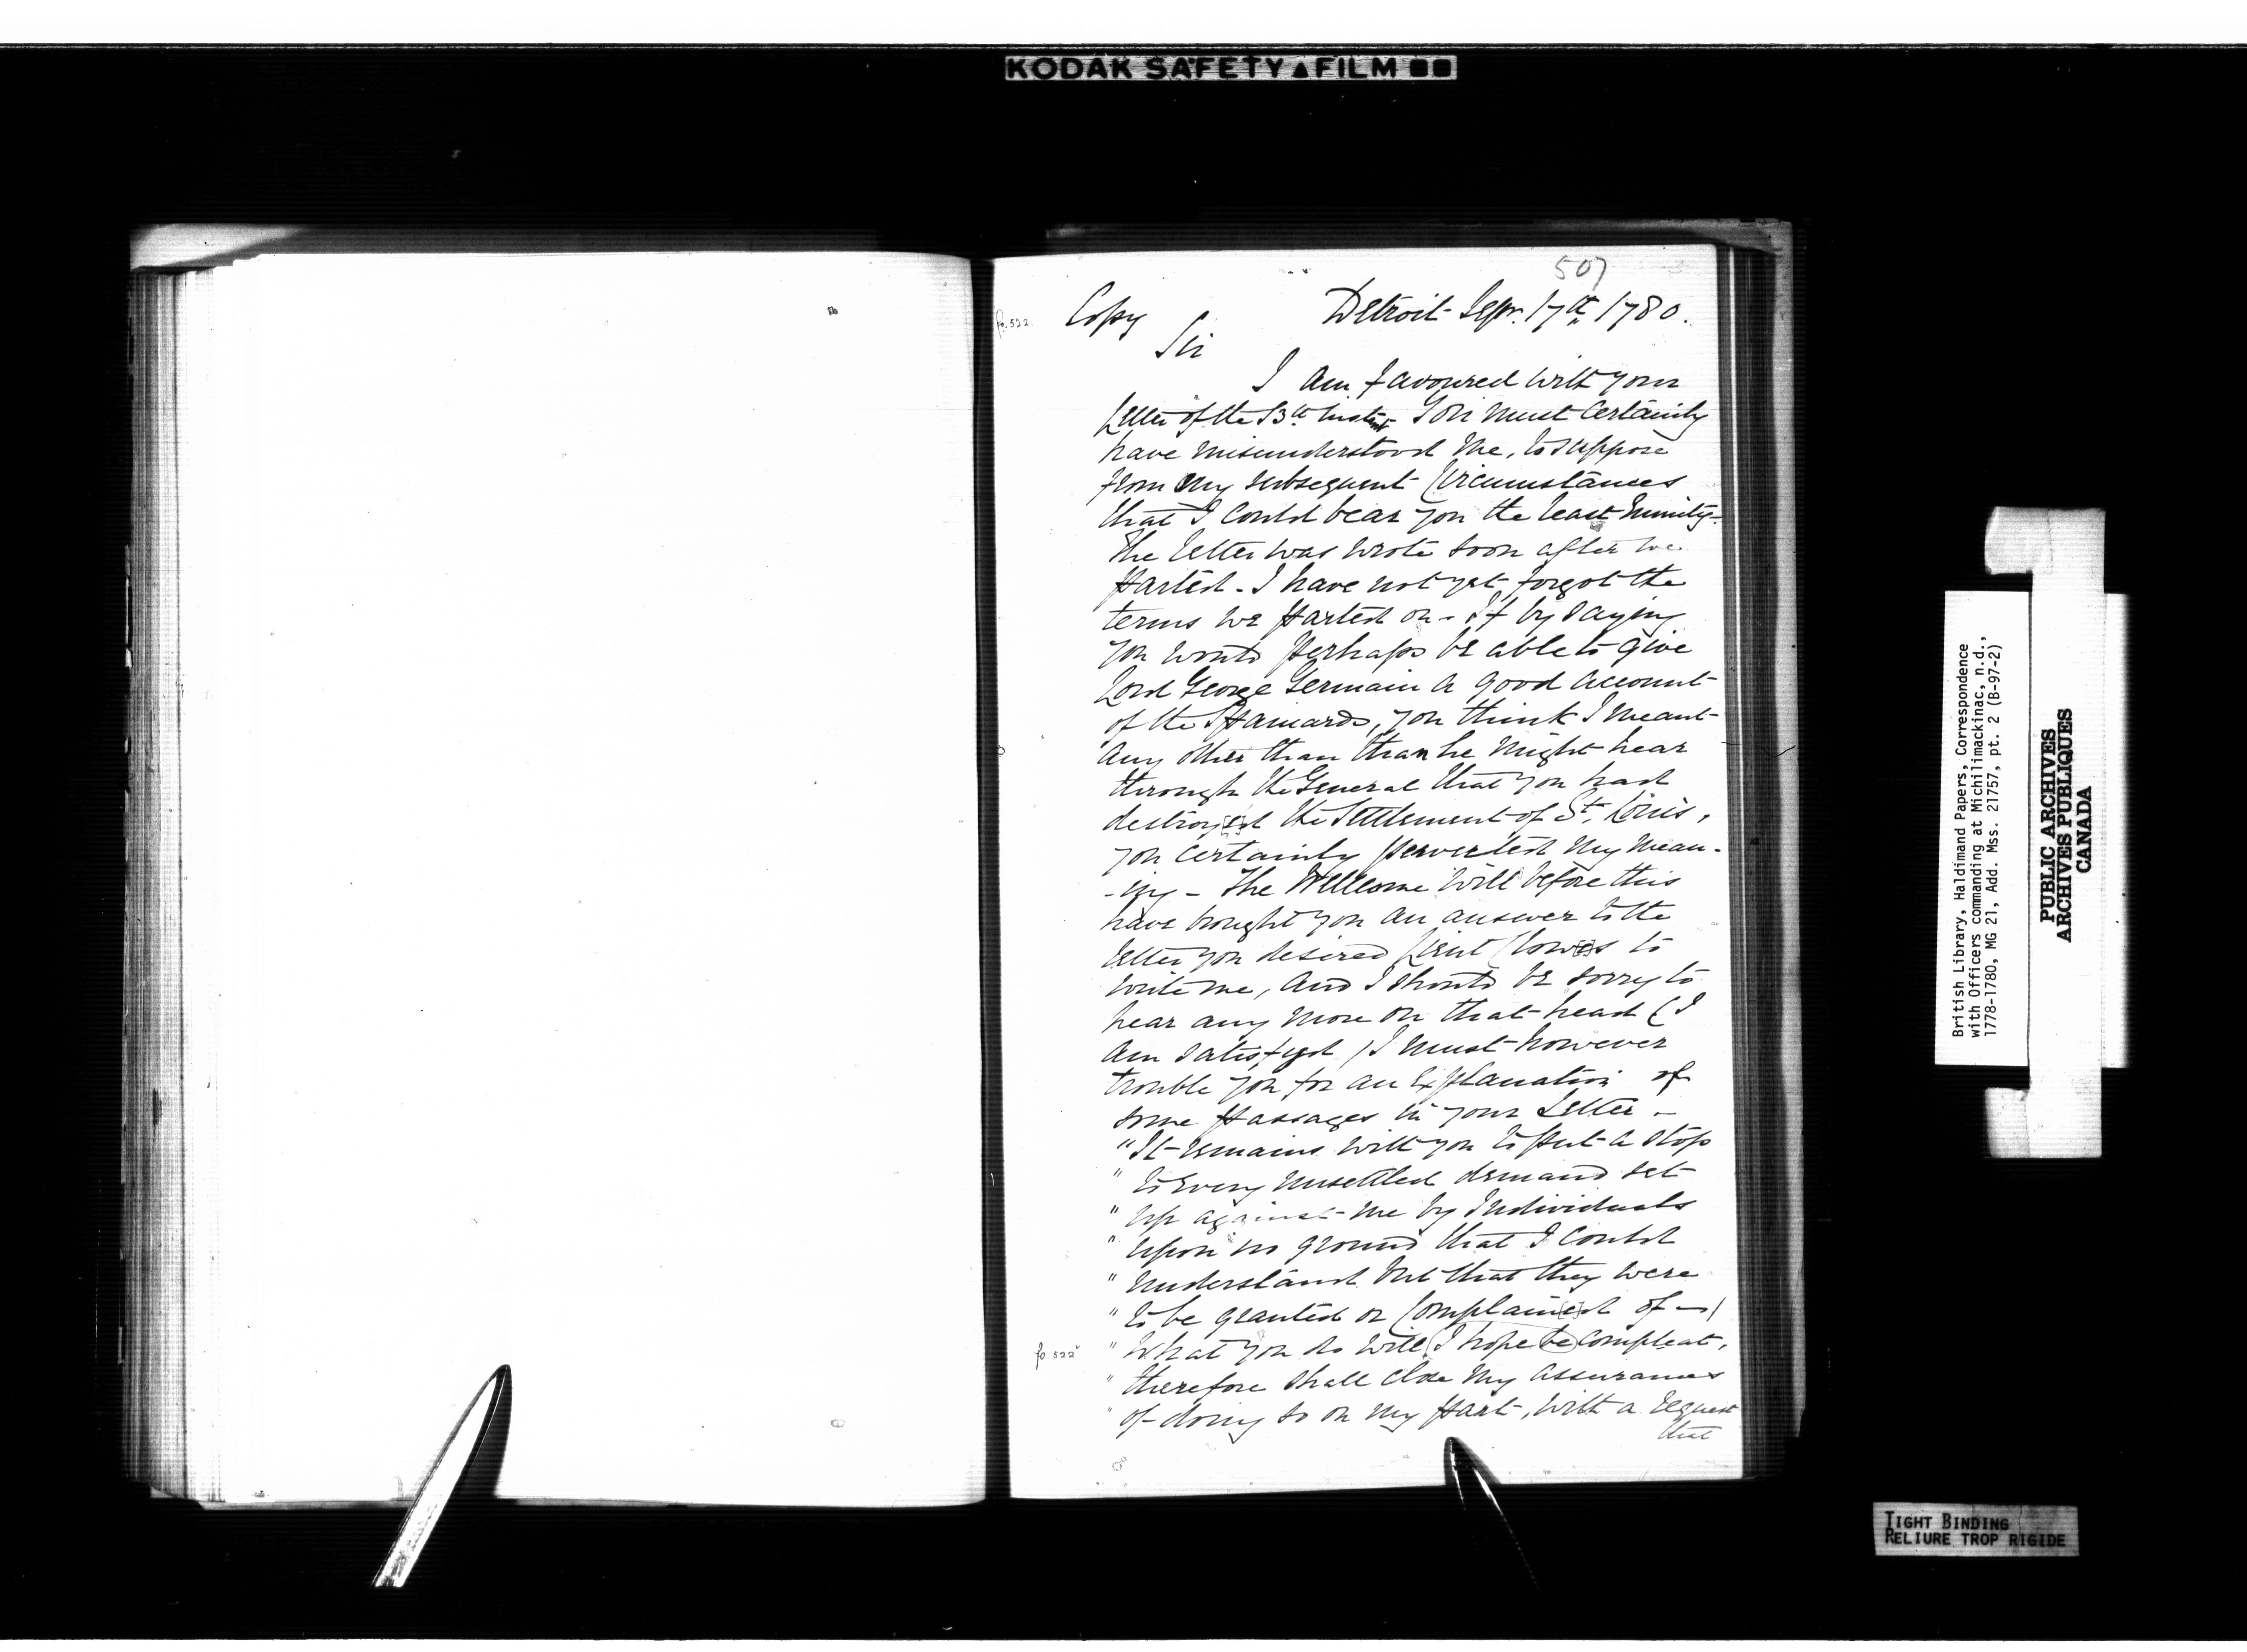 KODAK SAFETY FILM
507
fo. 522.
Copy
Detroit Sepr. 17th 1780.
Sir
I am favoured with your
Letter of the 13th Inst. You must certainly
have misunderstood me, to suppose
from my subsequent Circumstances
that I could bear you the least Enmity-
The letter was wrote soon after we
parted. I have not yet forgot the
terms we parted on - If by saying
you would perhaps be able to give
Lord George Germain a good account
of the Spaniards, you think I meant
any other than than he might hear
through the General that you had
destroy[e]d the Settlement of St. Louis,
you certainly perverted my mean-
-ing - The Wellcome will before this
have brought you an answer to the
letter you desired Lieut Clow[e]s to
write me, and I should be sorry to
hear any more on that head (I
am satisfyd) I must however
trouble you for an Explanation of
some passages in your Letter -
"It remains with you to put a stop
" to every unsettled demand set
" up against me by Individuals
" upon no ground that I could
" understand but that they were
" to be granted or Complain[e]d of -
fo 522v
" What you do will (I hope be compleat,
" therefore shall close my assurances
" of doing so on my part, with a request
that
British Library, Haldimand Papers, Correspondence
with Officers commanding at Michilimackinac, n.d.,
1778-1780, MG 21, Add. Mss. 21757, pt. 2 (B-97-2)
PUBLIC ARCHIVES
ARCHIVES PUBLIQUES
CANADA
TIGHT BINDING
RELIURE TROP RIGIDE